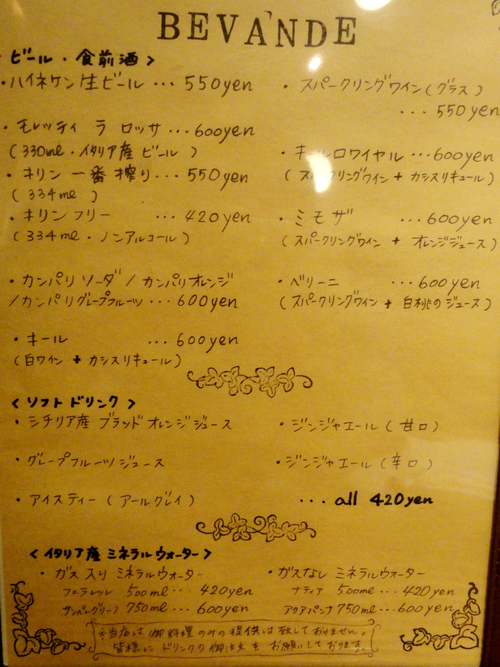 BEVANDE
ビール・食前酒>
・ハイネケン生ビール … 550yen
・スパークリングワイン(グラス)
… 550yen
・モレッティ ラ ロッサ … 600yen
(330ml・イタリア産 ビール )
・キールロワイヤル … 600yen
(スパークリングワイン + カシスリキュール)
・キリン 一番搾り … 550yen
( 334ml )
・キリンフリー … 420yen
(334ml・ノンアルコール)
・ミモザ … 600yen
(スパークリングワイン + オレンジジュース)
・カンパリ ソーダ / カンパリオレンジ
/カンパリグレープフルーツ … 600yen
・ベリーニ … 600yen
(スパークリングワイン + 白桃のジュース)
・キール … 600yen
(白ワイン + カシスリキュール)
<ソフトドリンク>
・シチリア産 ブラッドオレンジジュース
・グレープフルーツジュース
・アイスティー ( アールグレイ )
・ジンジャエール ( 甘口 )
・ジンジャエール ( 辛口 )
… all 420yen
<イタリア産 ミネラルウォーター>
・ガス入り ミネラルウォーター
フェラレッレ 500ml … 420yen
サンペレグリーノ 750ml … 600yen
・ガスなし ミネラルウォーター
ナティア 500ml … 420yen
アクアパンナ 750ml … 600yen
※当店は御料理のみの提供は致しておりません。
皆様にドリンクの御注文をお願いしております。